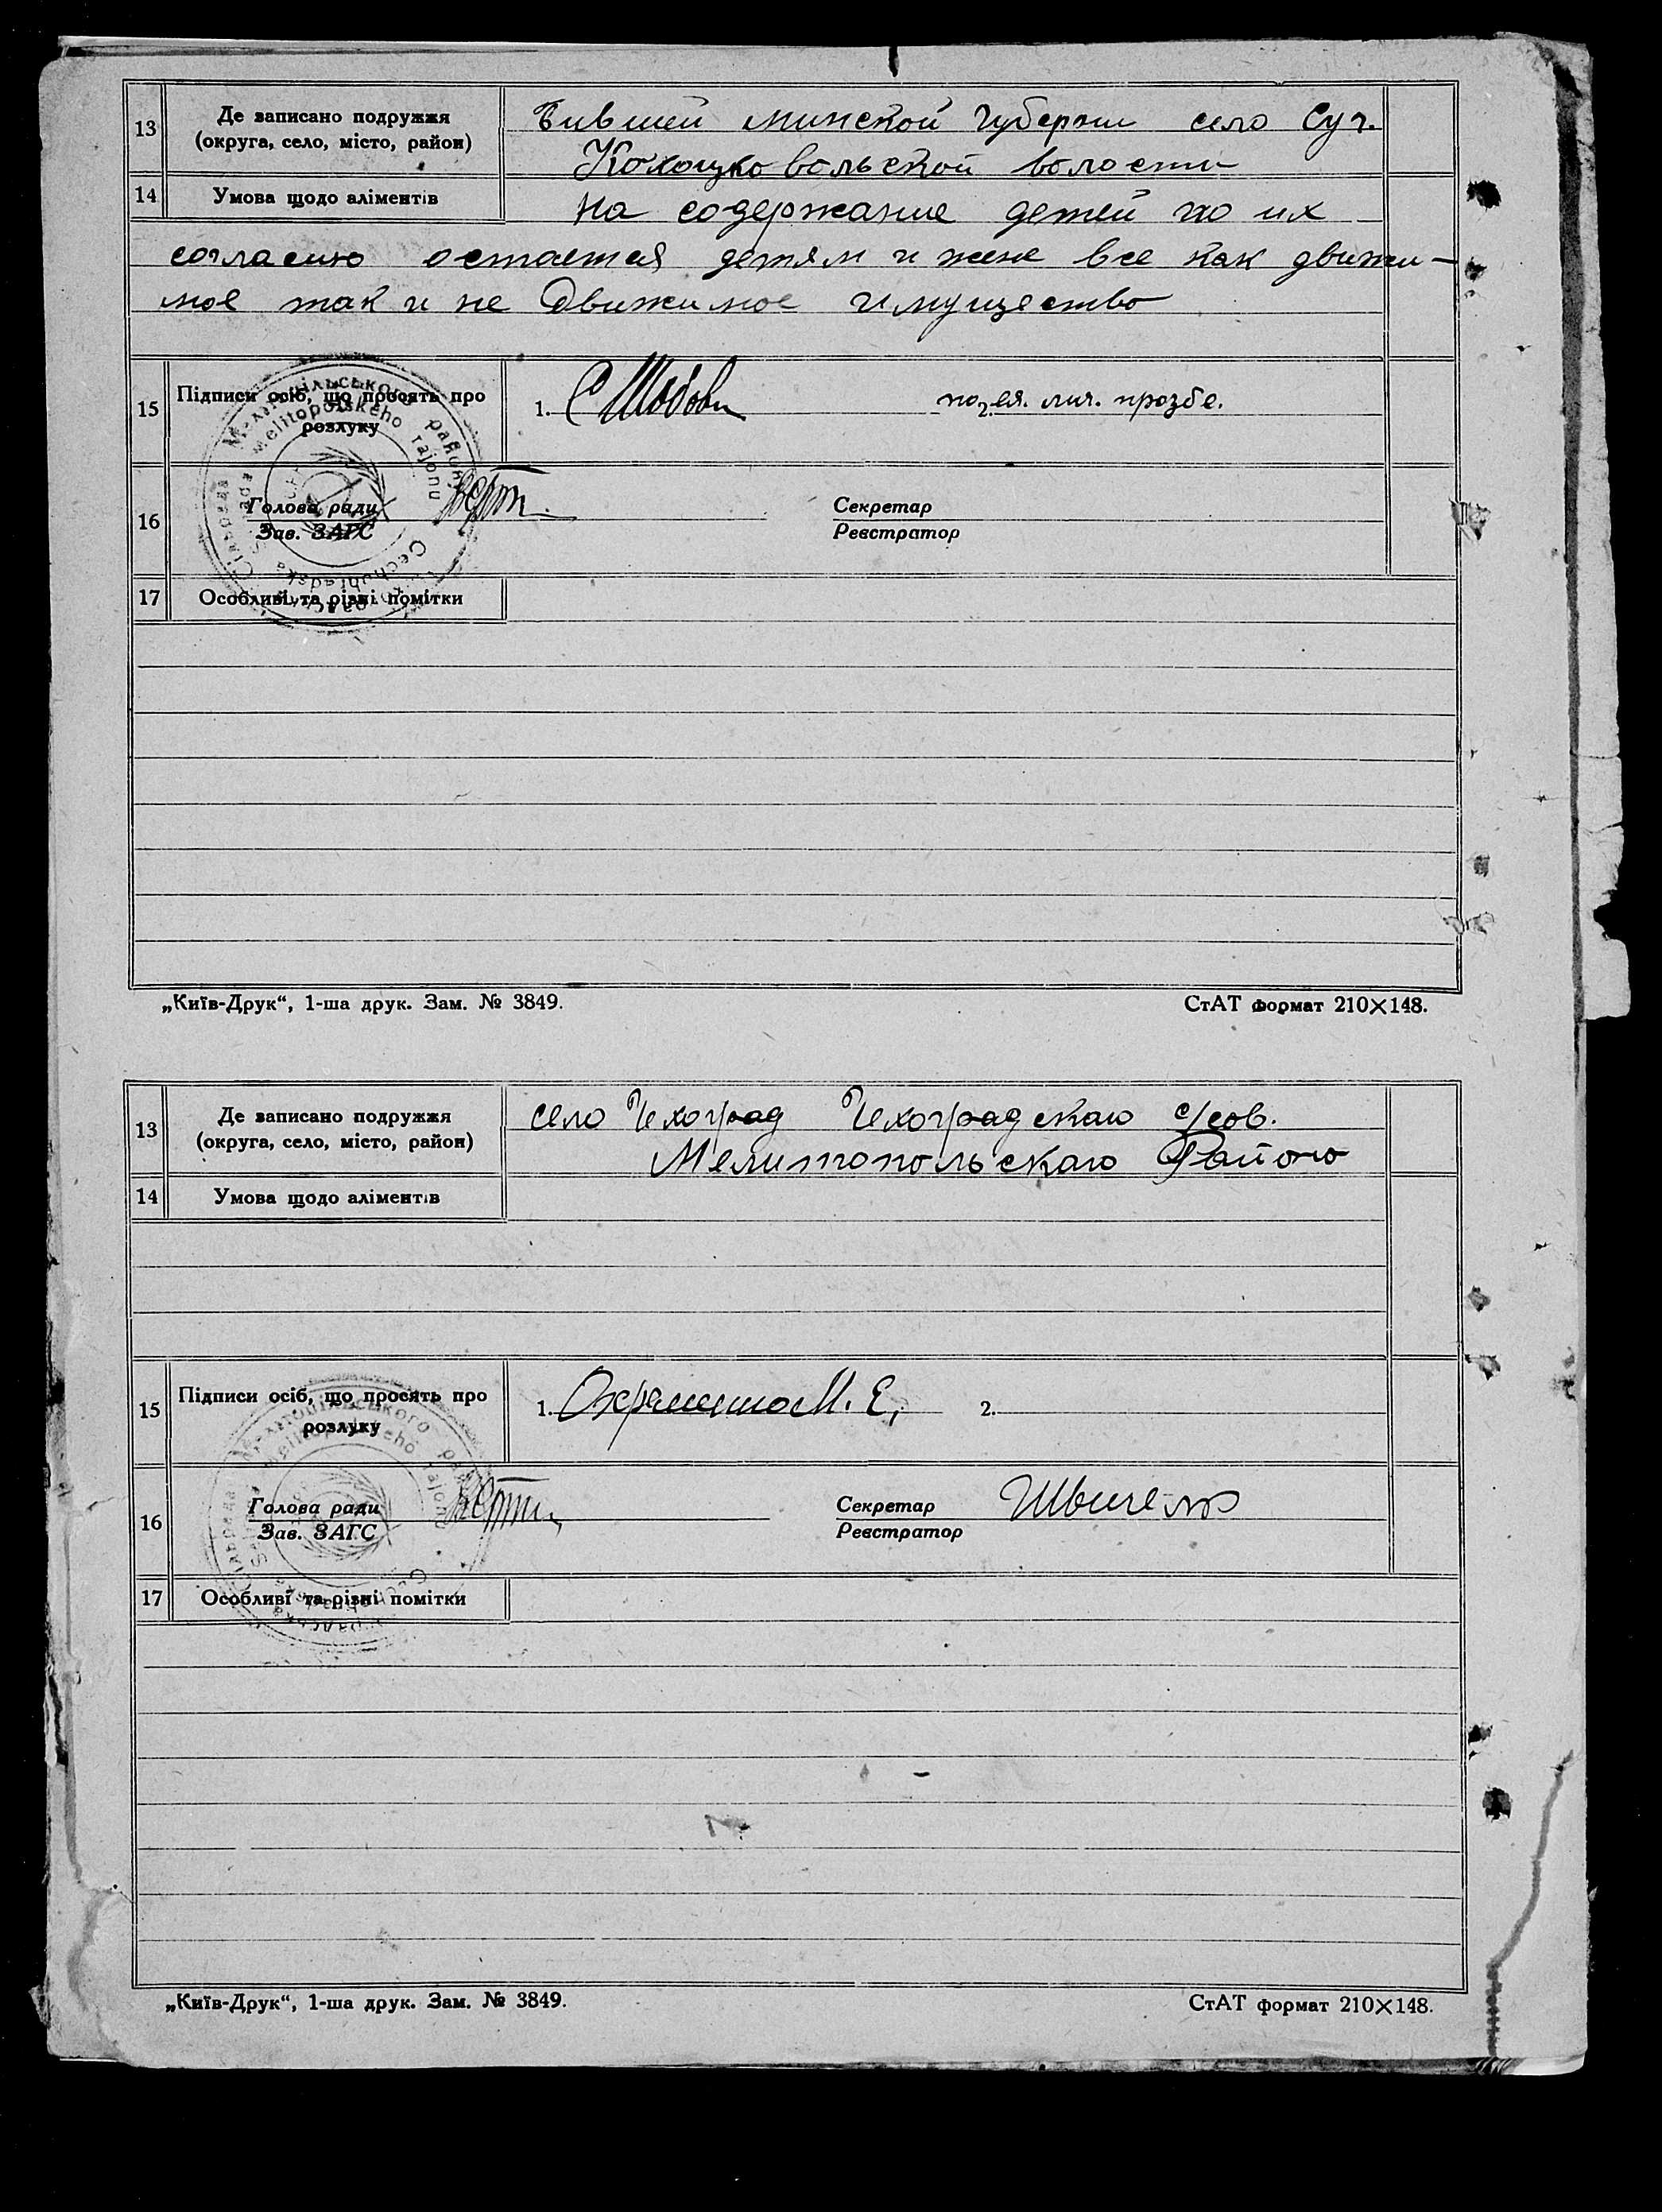 13
Де записано подружжя
(округа, село, місто, район)
бившей минской губернии село Суч.
волости
14
Умова щодо аліментів
на содержание детей по их
согласию остается детям и жене все как движи-
мое так и не движимое имущество
15
Підписи осіб, що просять про
розлуку
1.
2.
по ея. лич. прозбе.
16
Голова ради
Зав. ЗАГС
Секретар
Реєстратор
17
Особливі та різні помітки
Мелітопільського району
Melitopolskeho rajonu
Cechohradska
„Київ-Друк“, 1-ша друк. Зам. № 3849.
СтАТ формат 210×148.
13
Де записано подружжя
(округа, село, місто, район)
село Чехоград Чехоградскаго с/сов.
Мелитопольскаго Району
14
Умова щодо аліментів
15
Підписи осіб, що просять про
розлуку
1.
М. Е.
2.
16
Голова ради
Зав. ЗАГС
Секретар
Реєстратор
17
Особливі та різні помітки
„Київ-Друк“, 1-ша друк. Зам. № 3849.
СтАТ формат 210×148.